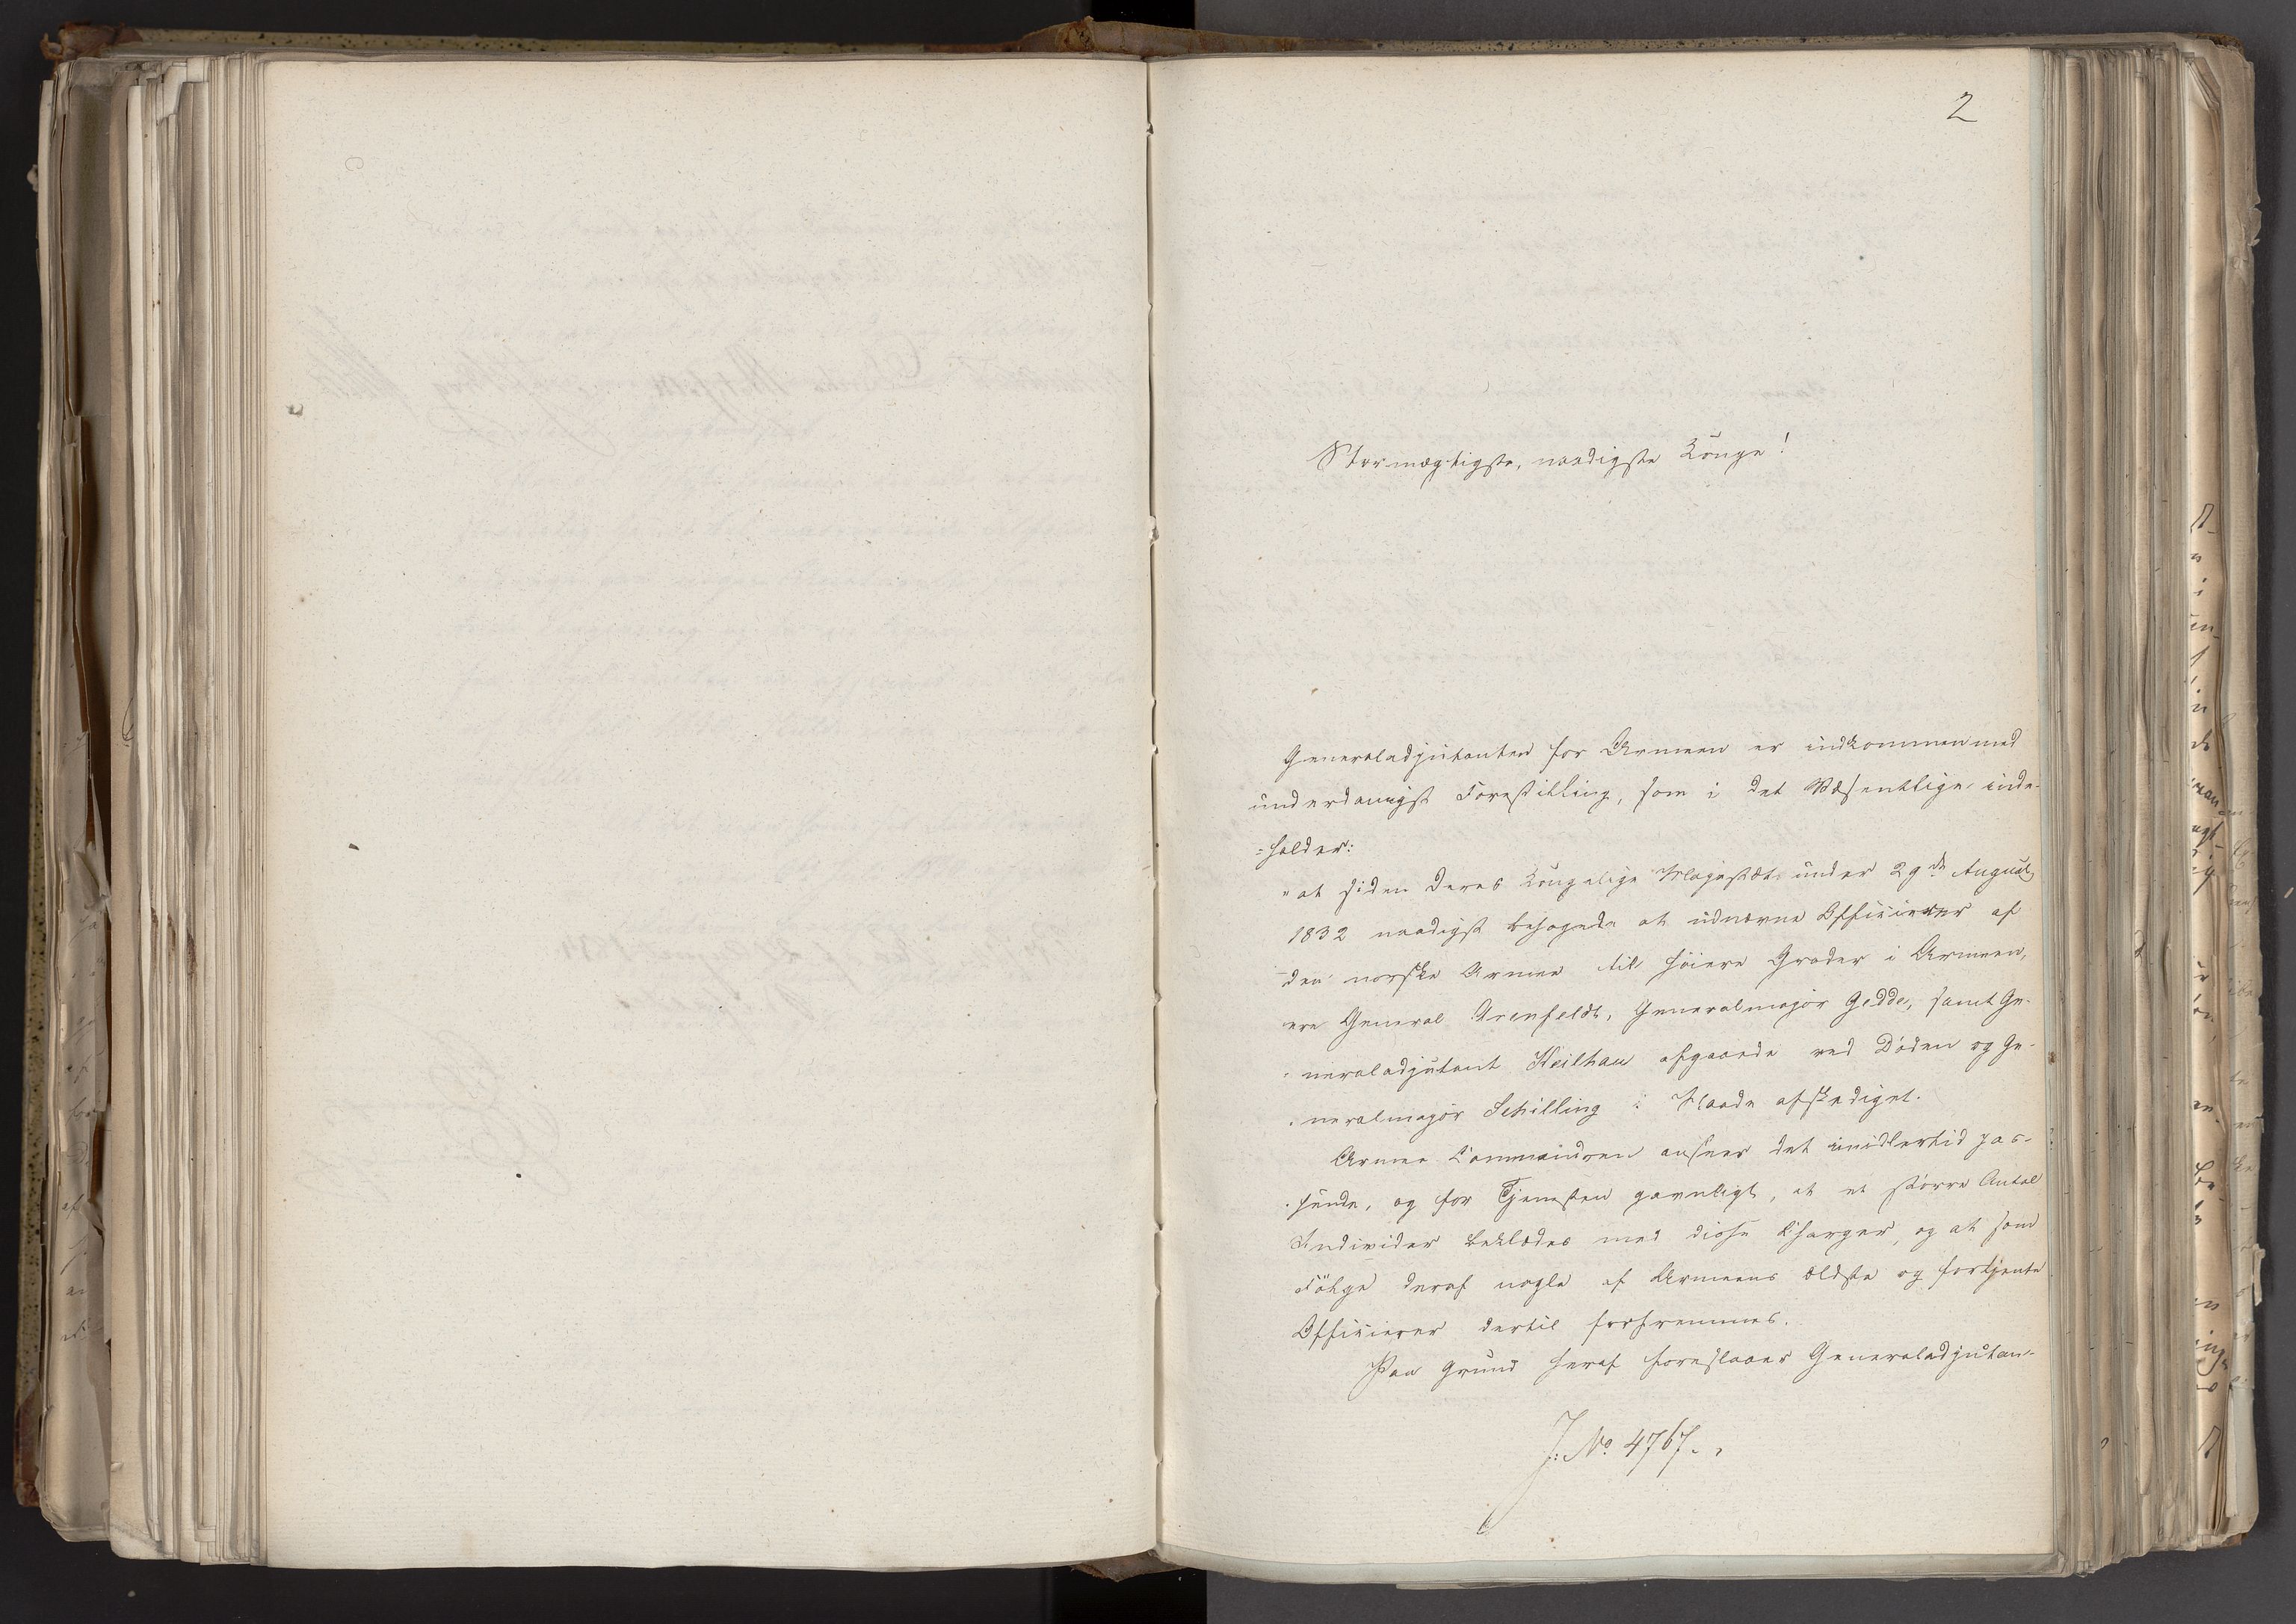 2
Stormægtigste, naadigste Konge!
Generaladjutanten for Armeen er indkommen med
underdanigst Forestilling, som i det Væsentlige inde-
=holder:
"at siden Deres Kongelige Majestæt under 29de August
1832 naadigst behagede at udnævne Officierer af
den norske Armee til höiere Grader i Armeen,
ere General Arenfeldt, Generalmajor Gedde, samt Ge-
neraladjutant Keilhau afgaaede ved Döden og Ge-
neralmajor Schilling i Naade afskediget.
Armee Commandoen anseer det imidlertid pas-
sende, og for Tjenesten gavnligt, at et större Antal
Individer beklædes med disse Charger, og at som
Fölge deraf nogle af Armeens ældste og fortjente
Officierer dertil forfremmes.
Paa Grund heraf foreslaaer Generaladjutan-
J: No 4767.